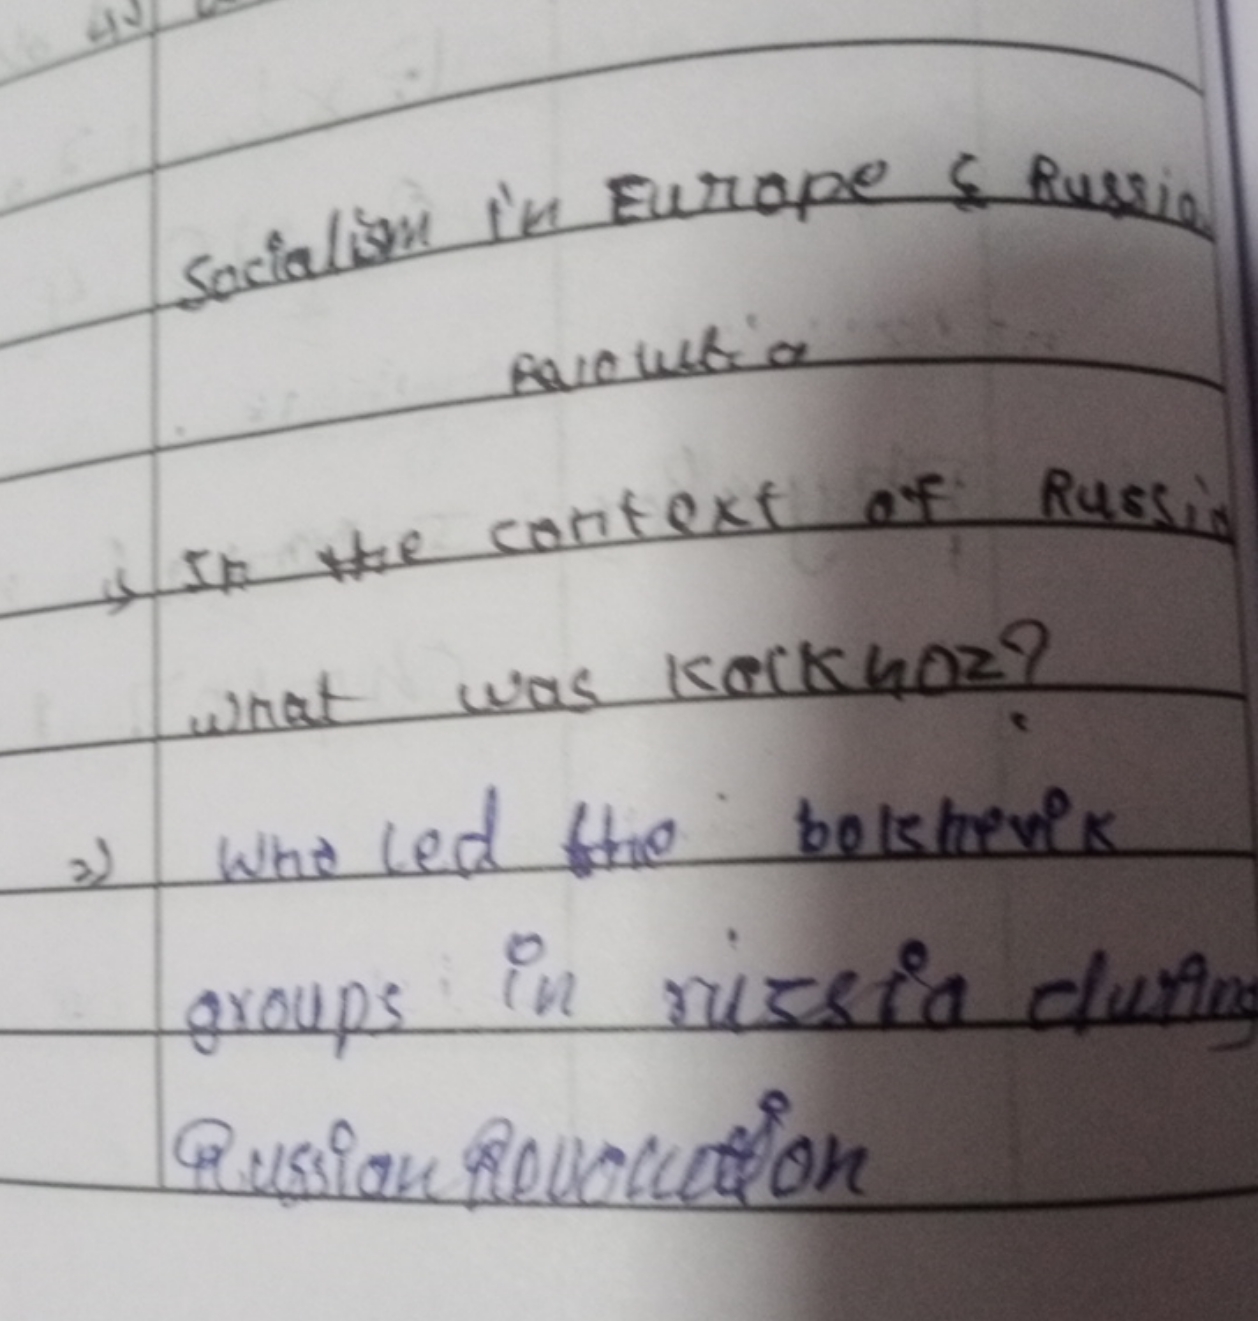 Socialism in Europe & Russia
1) In the context of Russia
what was Kolkhoz?
2) Who led the bolshevik
groups in russia during
Russian Revolution